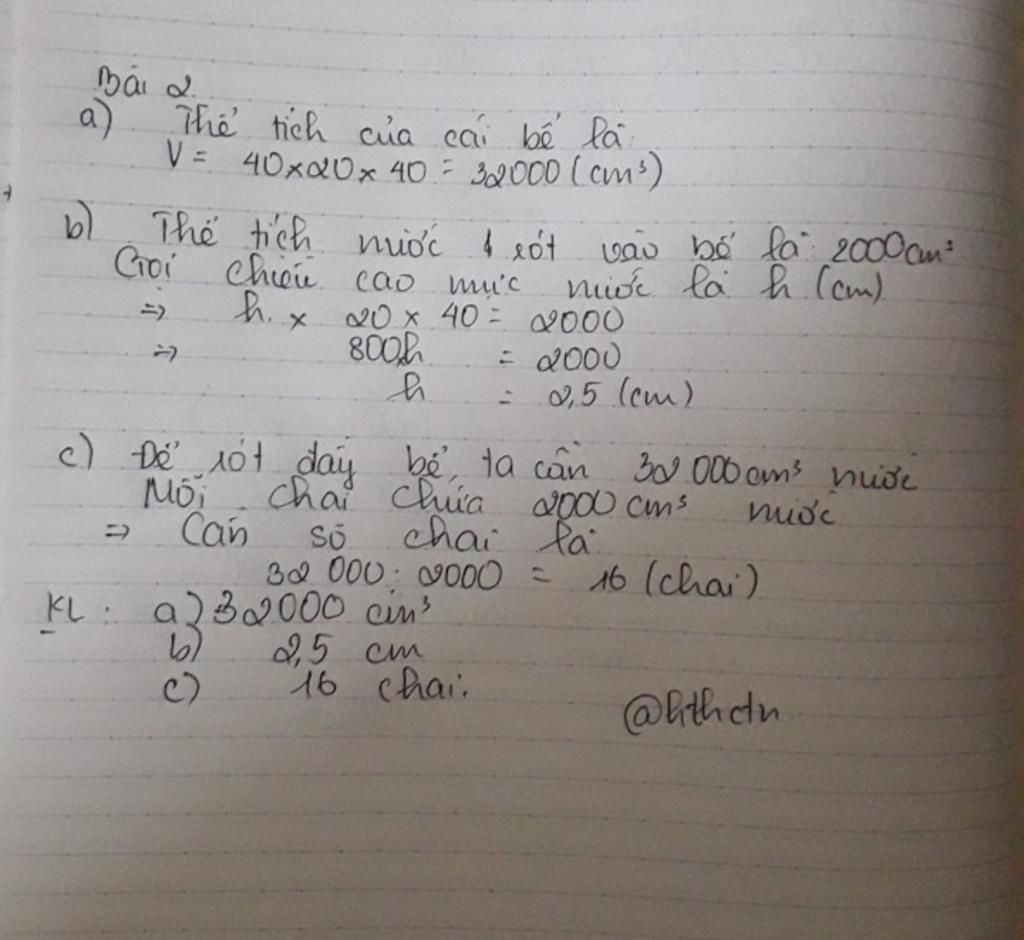 Bài 2.
a) Thể tích của cái bể là:
V = 40×20×40 = 32000 (cm³)
b) Thể tích nước rót vào bể là: 2000cm³
Gọi chiều cao mực nước là h (cm)
⇒ h × 20 × 40 = 2000
⇒ 800h = 2000
h = 2,5 (cm)
c) Để rót đầy bể, ta cần 32 000cm³ nước
Mỗi chai chứa 2000 cm³ nước
⇒ Cần số chai là:
32 000 : 2000 = 16 (chai)
KL : a) 32000 cm³
b) 2,5 cm
c) 16 chai.
@hthctn